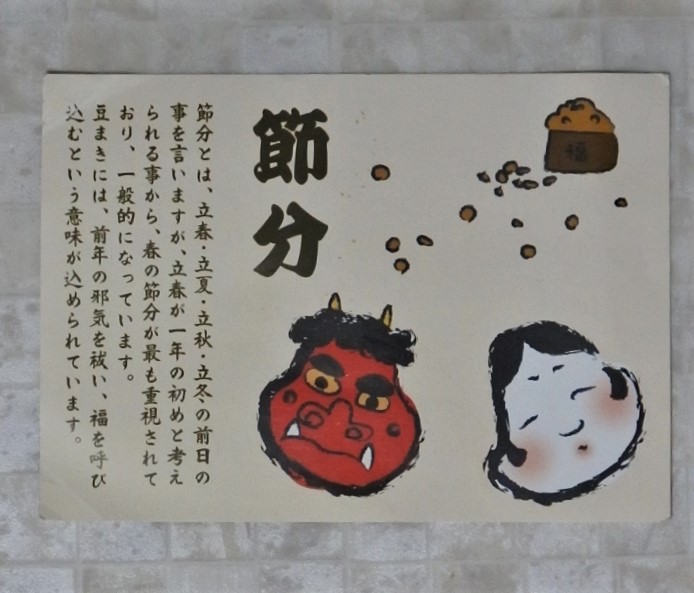 福
節分
節分とは、立春・立夏・立秋・立冬の前日の
事を言いますが、立春が一年の初めと考え
られる事から、春の節分が最も重視されて
おり、一般的になっています。
豆まきには、前年の邪気を祓い、福を呼び
込むという意味が込められています。